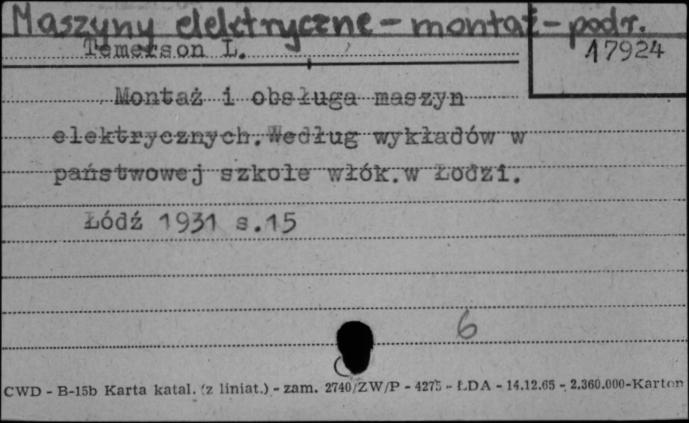 Maszyny elektryczne - montaż - podr.
Temerson L.
17924
Montaż i obsługa maszyn
elektrycznych. Według wykładów w
państwowej szkole włók. w Łodzi.
Łódź 1931 s.15
6
CWD - B-15b Karta katal. (z liniat.) - zam. 2740/ZW/P - 4275 - ŁDA - 14.12.65 - 2.360.000-Karton